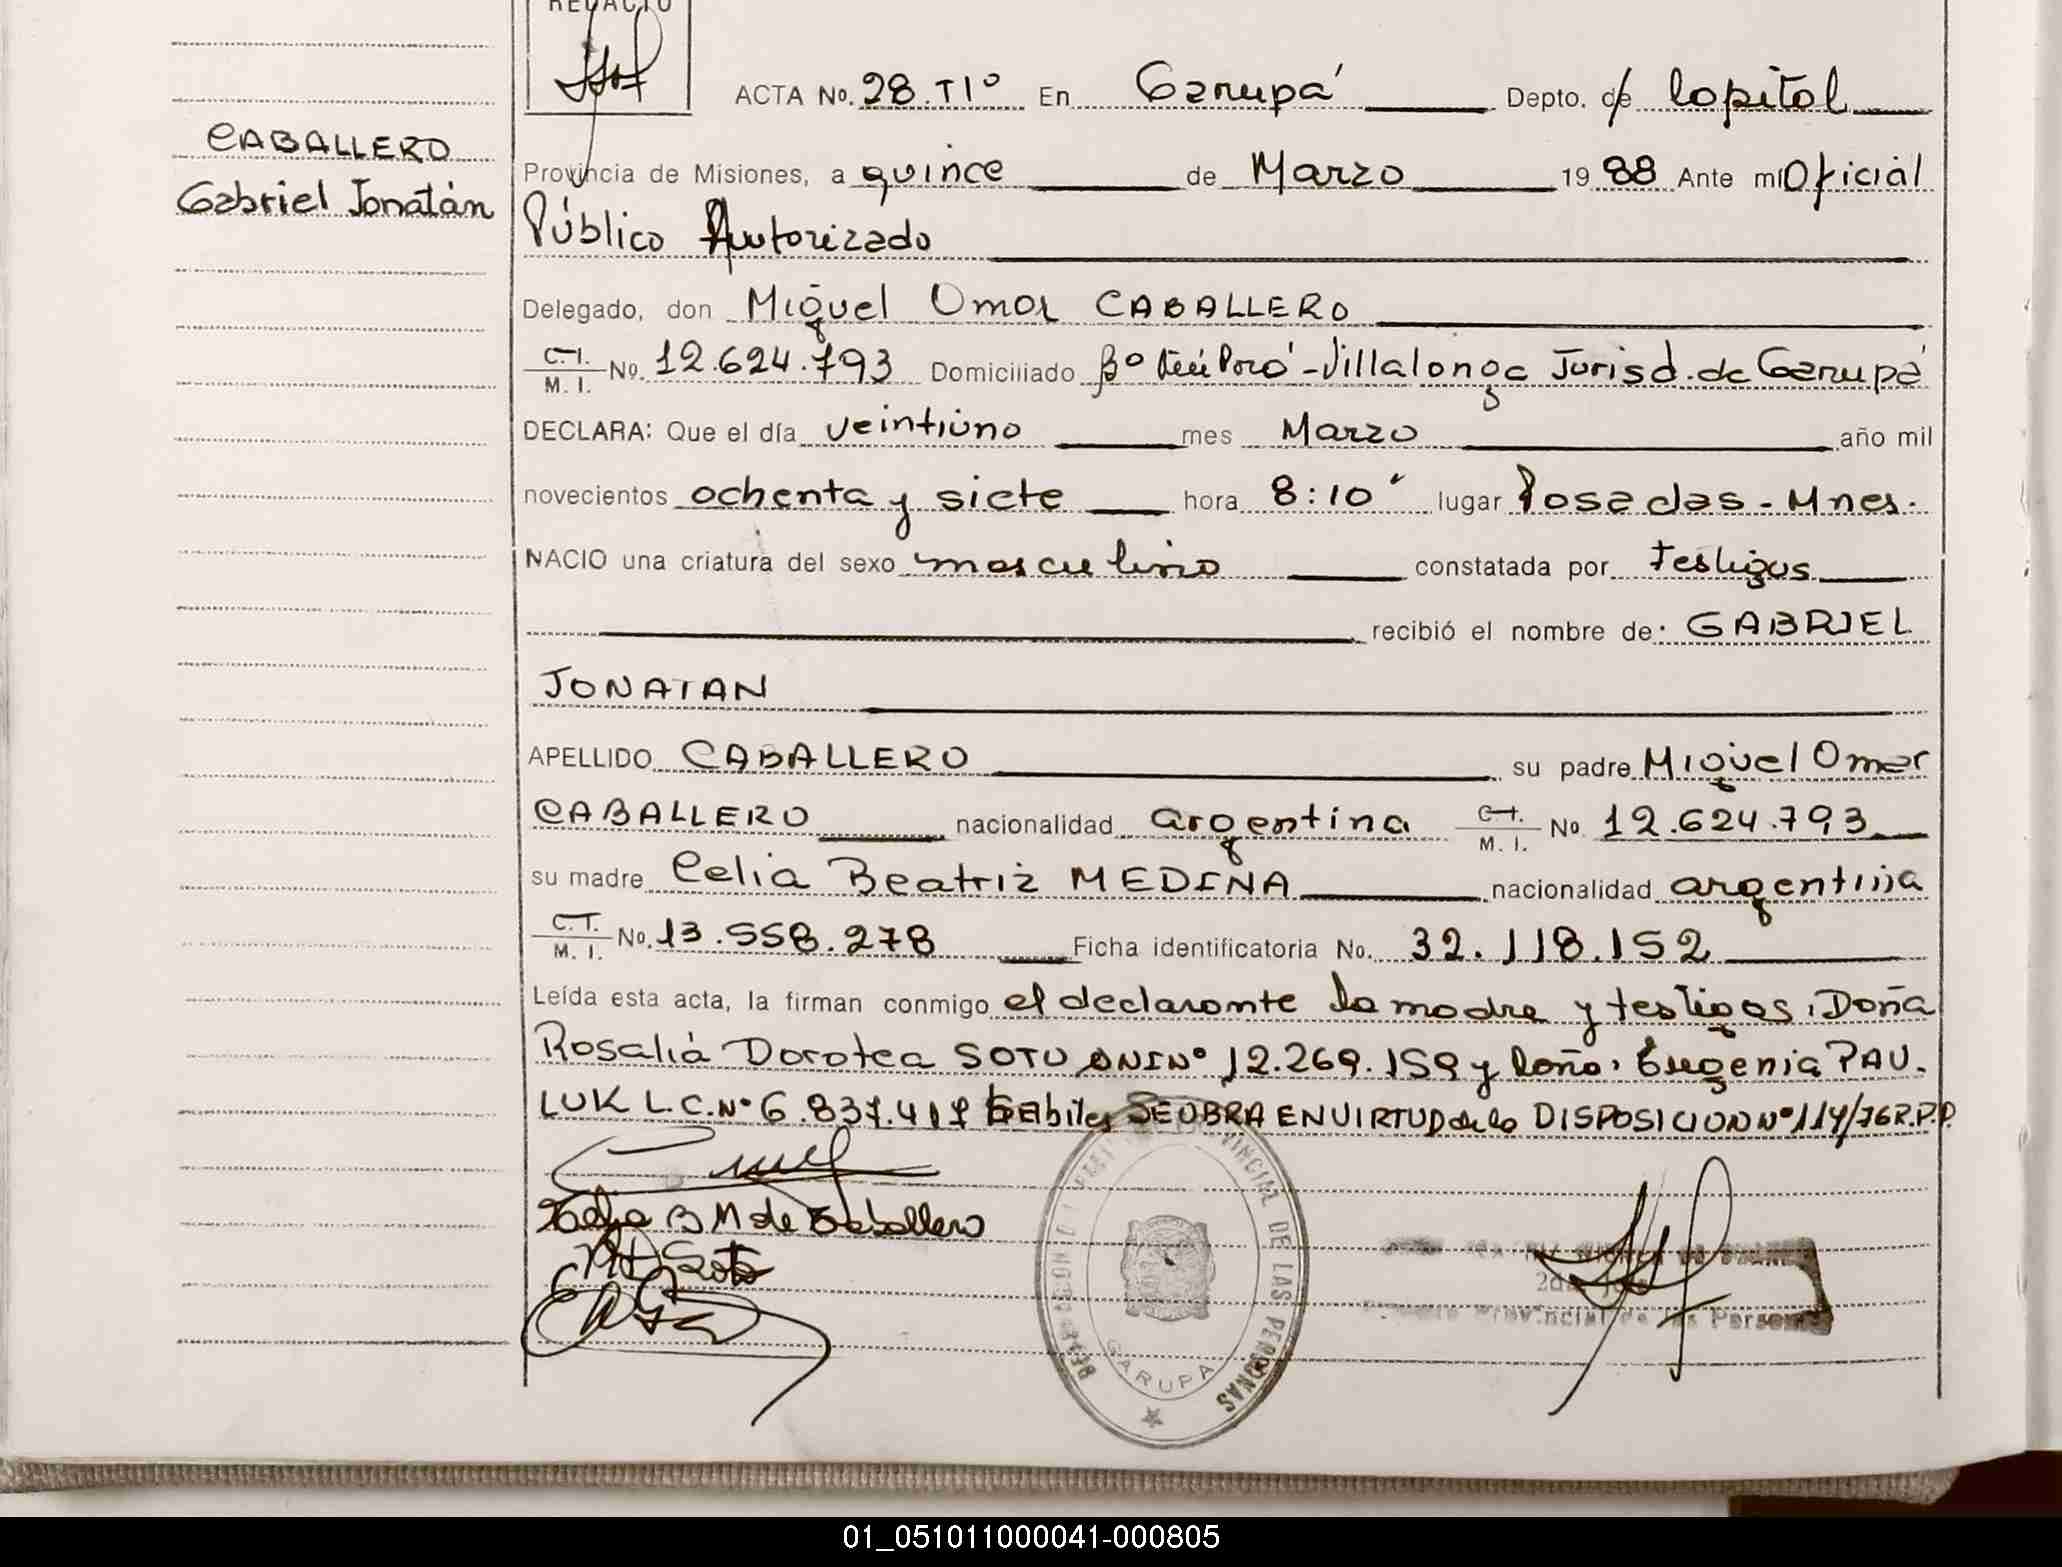 REDACTO
ACTA No. 28.TIº En Garupá Depto. de Capital
CABALLERO
Gabriel Jonatán
Provincia de Misiones, a quince de Marzo 1988 Ante mí Oficial
Público Autorizado
Delegado, don Miguel Omar CABALLERO
C.I. M. I. No. 12.624.793 Domiciliado Bº Villalonga Jurisd. de Garupá
DECLARA: Que el día veintiuno mes Marzo año mil
novecientos ochenta y siete hora 8:10' lugar Posadas - Mnes.
NACIO una criatura del sexo masculino constatada por testigos
recibió el nombre de: GABRIEL
JONATAN
APELLIDO CABALLERO su padre Miguel Omar
CABALLERO nacionalidad argentina C.I. M. I. No. 12.624.793
su madre Celia Beatriz MEDINA nacionalidad argentina
C.I. M. I. No. 13.558.278 Ficha identificatoria No. 32.118.152
Leída esta acta, la firman conmigo el declarante la madre y testigos, Doña
Rosalia Dorotea SOTO DNI Nº 12.269.159 y Doña Eugenia PAU-
LUK L.C. Nº 6.837.417 habiles SE OBRA EN VIRTUD de la DISPOSICION Nº 114/76 R.P.P.
B M de Caballero
Soto
PROVINCIAL DE LAS PERSONAS
GARUPA
Provincial de las Personas
01_051011000041-000805